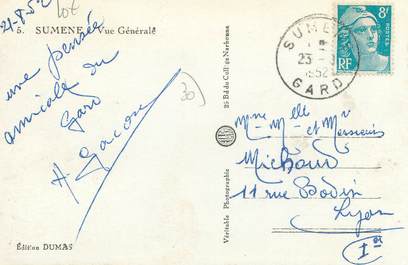 21-8.52
lot
5. SUMENE - Vue Générale
une pensée
amicale du
Gard
H Gacon
30
Édition DUMAS
Véritable Photographie
25 Bd du Collège Narbonne
SUMENE
23-8
1952
GARD
8F
POSTES
RF
Mme Mlle et Messieurs
Michoud
11 rue Bodin
Lyon
1er